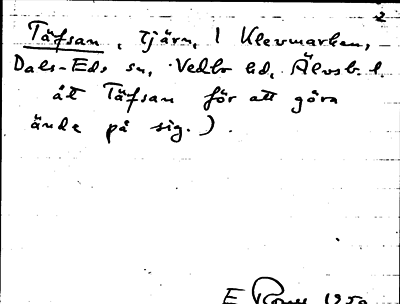 2
Täfsan, tjärn, i Klevmarken,
Dals-Eds sn, Vedbo hd, Älvsb. l.
åt Täfsan för att göra
ände på sig.).
E